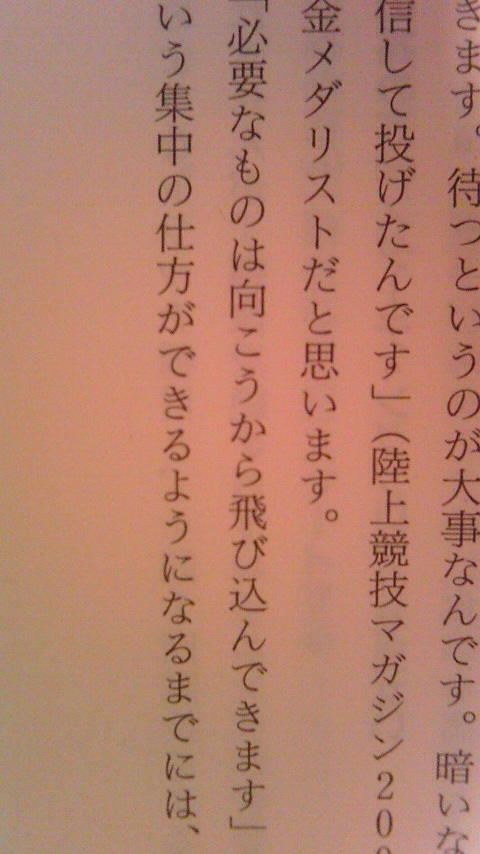 きます。待つというのが大事なんです。暗いな
信して投げたんです」（陸上競技マガジン200
金メダリストだと思います。
「必要なものは向こうから飛び込んできます」
いう集中の仕方ができるようになるまでには、